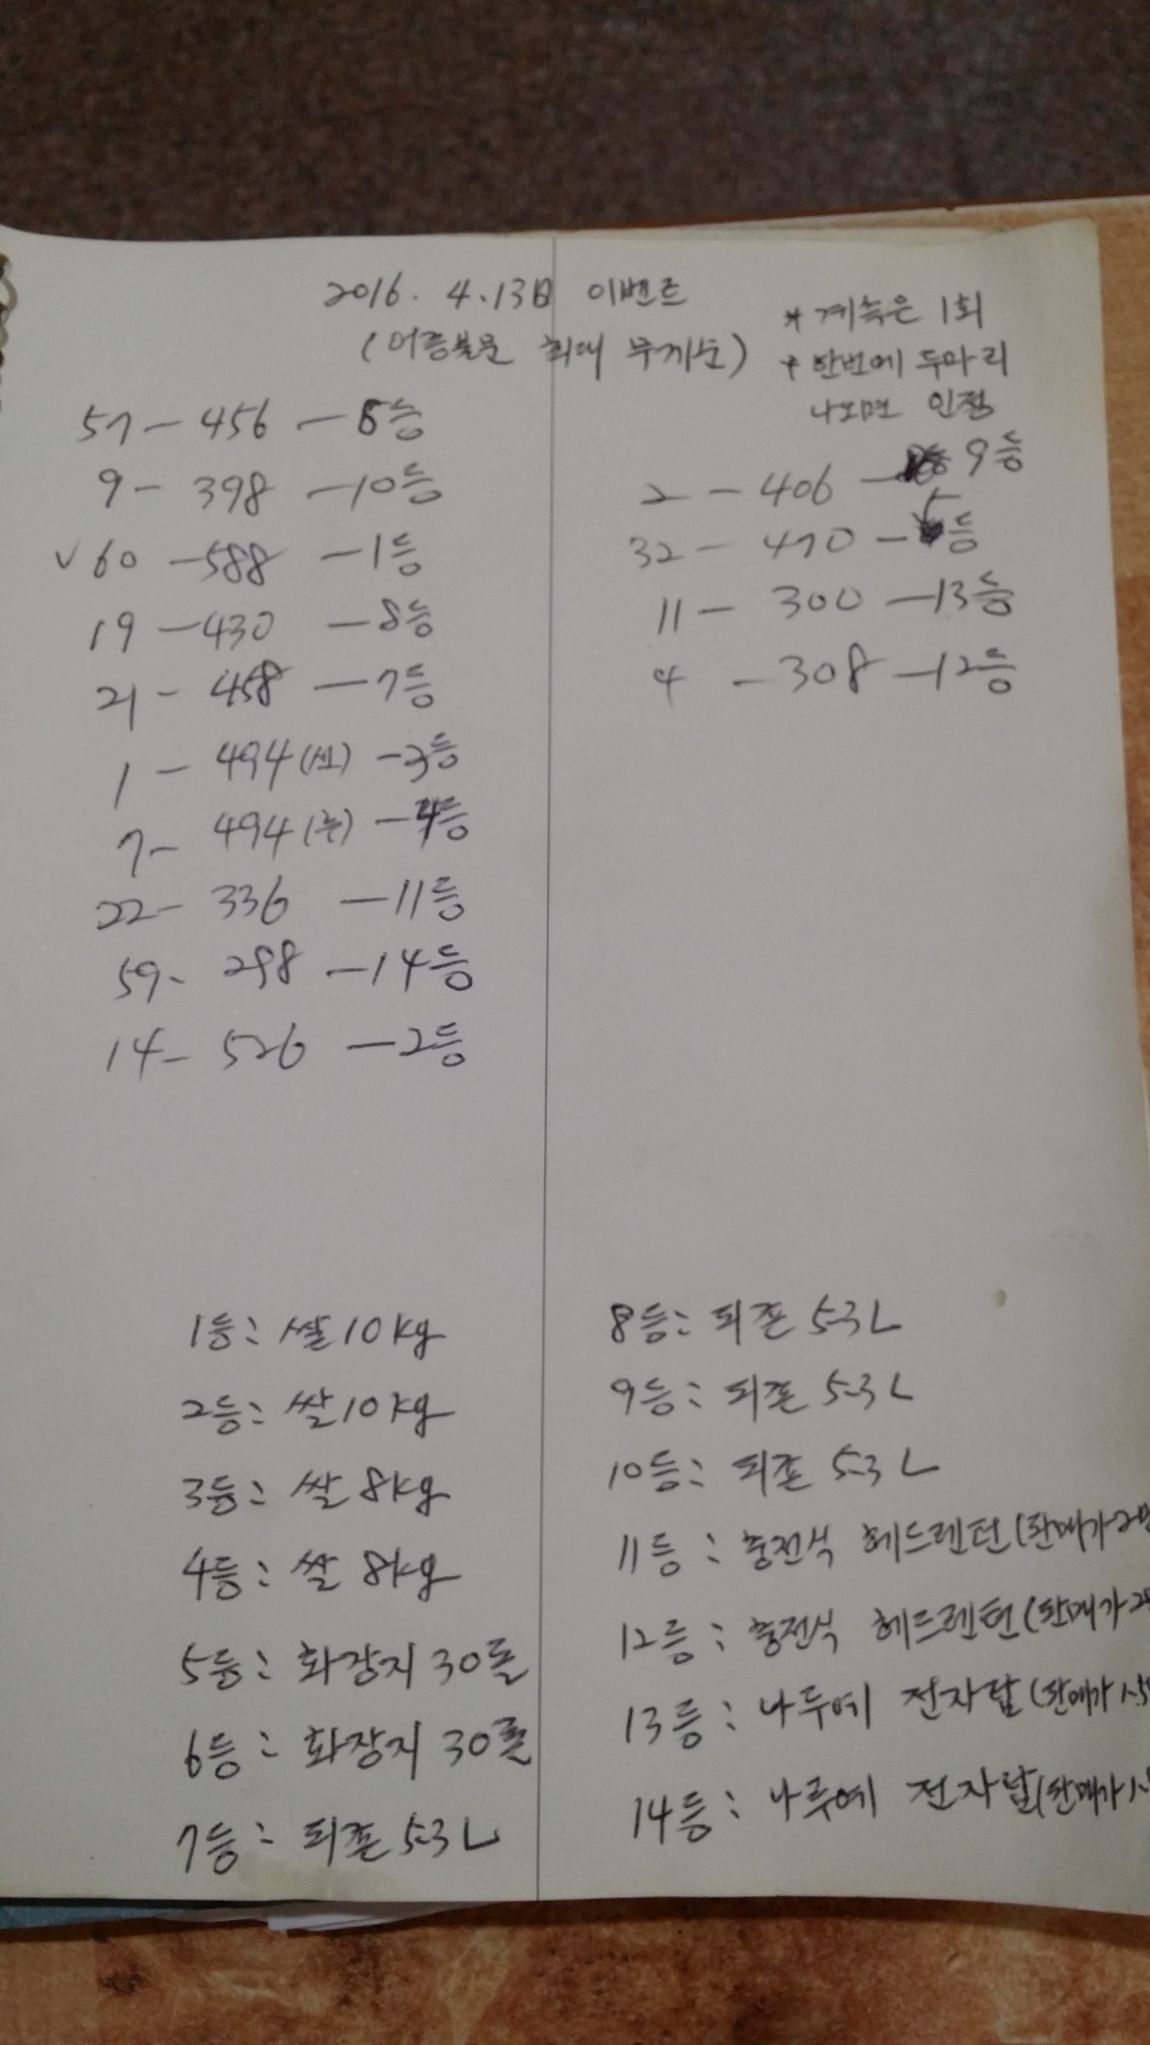 2016. 4. 13日 이벤트
(어종불문 최대 무게순)
* 계측은 1회
* 한번에 두마리
나오면 인정
57 - 456 - 등
9 - 398 - 10등
✓ 60 - 588 - 1등
19 - 430 - 8등
21 - 458 - 7등
1 - 494 - 3등
7 - 494 - 4등
22 - 336 - 11등
59 - 298 - 14등
14 - 526 - 2등
2 - 406 - 9등
32 - 470 - 5등
11 - 300 - 13등
4 - 308 - 12등
1등: 쌀 10kg
2등: 쌀 10kg
3등: 쌀 8kg
4등: 쌀 8kg
5등: 화장지 30롤
6등: 화장지 30롤
7등: 피죤 5.3L
8등: 피죤 5.3L
9등: 피죤 5.3L
10등: 피죤 5.3L
11등: 충전식 헤드렌턴 (판매가 2
12등: 충전식 헤드렌턴 (판매가 2
13등: 나루예 전자탑 (판매가 1.5
14등: 나루예 전자탑 (판매가 1.